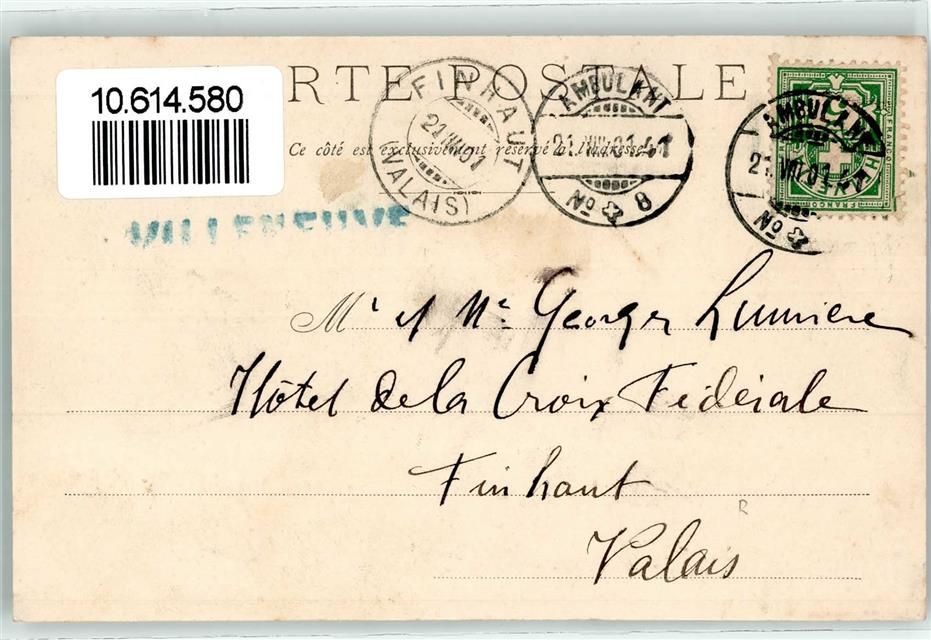 10.614.580
RTE POSTALE
Ce côté est exclusivement réservé à l'adresse.
FINHAUT
21.VIII.01
(VALAIS)
AMBULANT
21.VIII.01
No 8
AMBULANT
No
5
FRANCO
VILLENEUVE
Mr et Me Georges Lumière
Hôtel de la Croix Fédérale
Finhaut
R
Valais